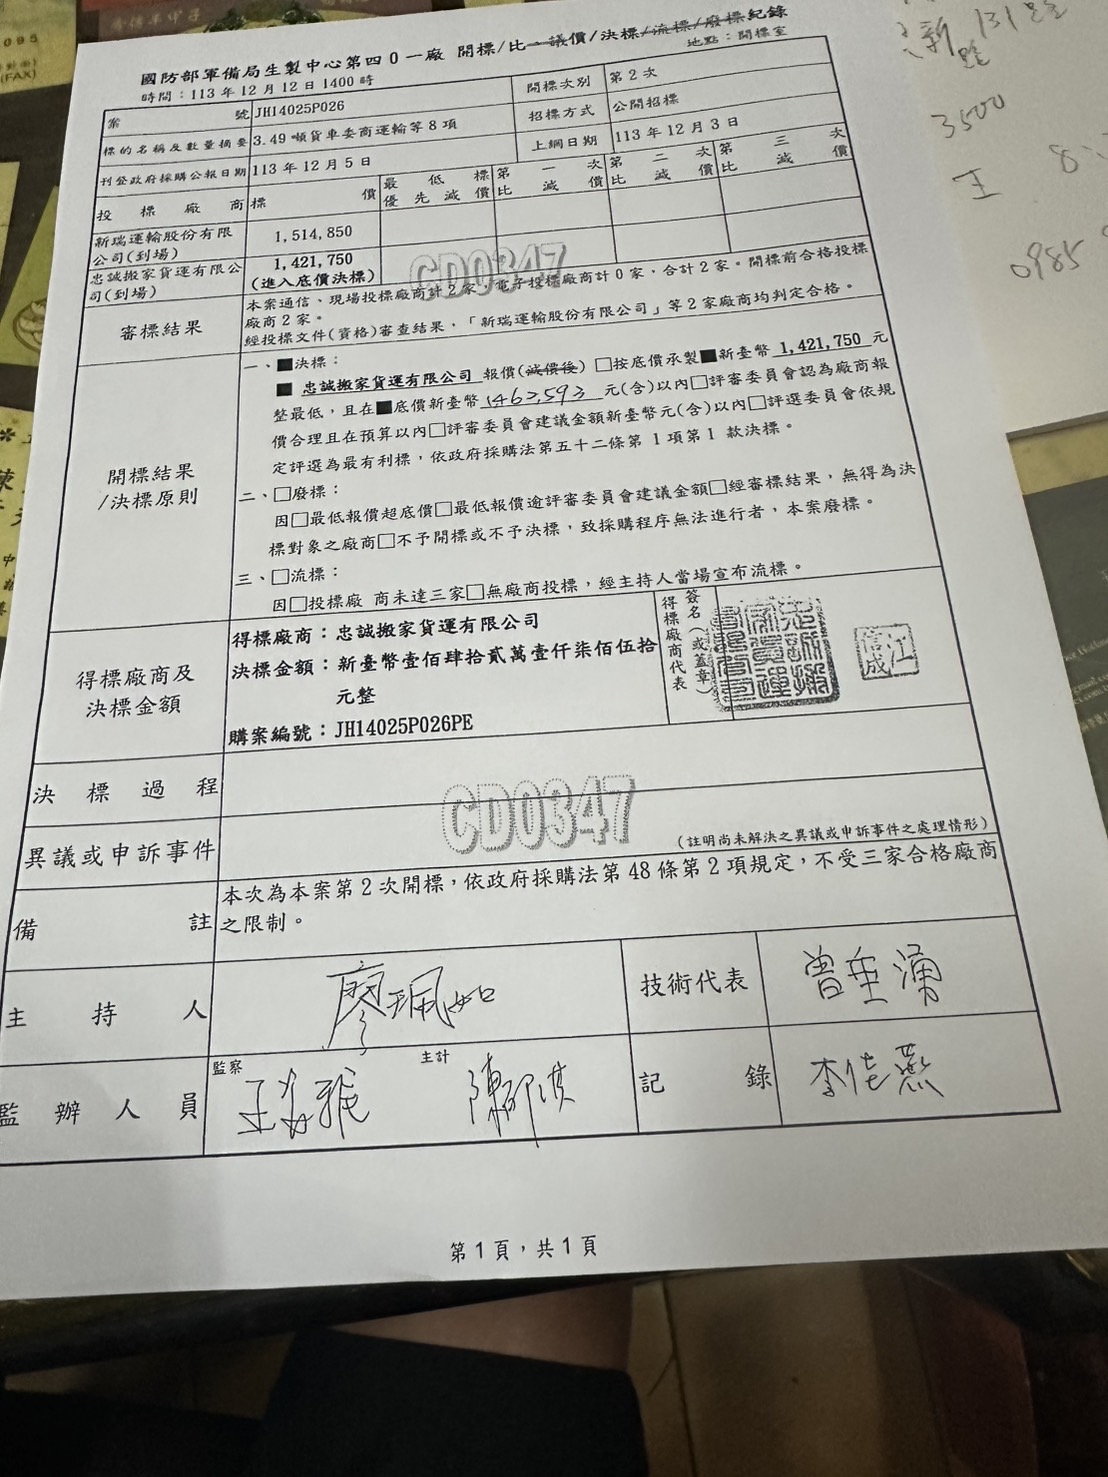 國防部軍備局生製中心第四0一廠 開標/比-議價/決標/流標/廢標紀錄
時間:113 年 12 月 12 日 1400 時
地點:開標室
案號 JH14025P026 開標次別 第 2 次
標的名稱及數量摘要 3.49 噸貨車委商運輸等 8 項 招標方式 公開招標
刊登政府採購公報日期 113 年 12 月 5 日 上網日期 113 年 12 月 3 日
投標廠商 標價 最低標優先減價 第一次比減價 第二次比減價 第三次比減價
新瑞運輸股份有限公司(到場) 1,514,850
忠誠搬家貨運有限公司(到場) 1,421,750
(進入底價決標)
CD0347
審標結果
本案通信、現場投標廠商計 2 家,電子投標廠商計 0 家,合計 2 家。開標前合格投標
廠商 2 家。
經投標文件(資格)審查結果,「新瑞運輸股份有限公司」等 2 家廠商均判定合格。
開標結果
/決標原則
一、■決標:
■ 忠誠搬家貨運有限公司 報價(減價後) □按底價承製■新臺幣 1,421,750 元
整最低,且在■底價新臺幣 1,462,593 元(含)以內□評審委員會認為廠商報
價合理且在預算以內□評審委員會建議金額新臺幣元(含)以內□評選委員會依規
定評選為最有利標,依政府採購法第五十二條第 1 項第 1 款決標。
二、□廢標:
因□最低報價超底價□最低報價逾評審委員會建議金額□經審標結果,無得為決
標對象之廠商□不予開標或不予決標,致採購程序無法進行者,本案廢標。
三、□流標:
因□投標廠 商未達三家□無廠商投標,經主持人當場宣布流標。
得標廠商及
決標金額
得標廠商:忠誠搬家貨運有限公司
決標金額:新臺幣壹佰肆拾貳萬壹仟柒佰伍拾
元整
購案編號:JH14025P026PE
得標廠商代表
簽名(或蓋章)
江信成
決標過程
CD0347
異議或申訴事件
(註明尚未解決之異議或申訴事件之處理情形)
備註
本次為本案第 2 次開標,依政府採購法第 48 條第 2 項規定,不受三家合格廠商
之限制。
主持人 廖珮如 技術代表 曾垂涌
監辦人員 監察 主計 記錄
第 1 頁,共 1 頁
3500
王
0985
0095
(FAX)